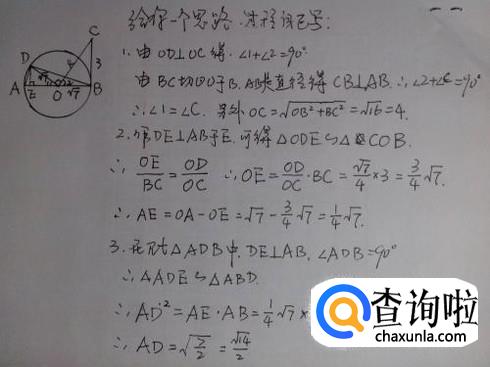 给你一个思路.过程自己写:
1.由OD⊥OC得.∠1+∠2=90°
由BC切⊙O于B.AB是直径得CB⊥AB.∴∠2+∠C=90°
∴∠1=∠C.另外OC=√OB²+BC²=√16=4.
2.作DE⊥AB于E.可得△ODE∽△COB.
∴OE/BC=OD/OC ∴OE=OD/OC·BC=√7/4×3=3/4√7.
∴AE=OA-OE=√7-3/4√7=1/4√7.
3.在Rt△ADB中.DE⊥AB,∠ADB=90°
∴△ADE∽△ABD.
∴AD²=AE·AB=1/4√7×
∴AD=√7/2=√14/2
C
D
4
3
√7
1
2
A
E
O
√7
B
查询啦
chaxunla.com